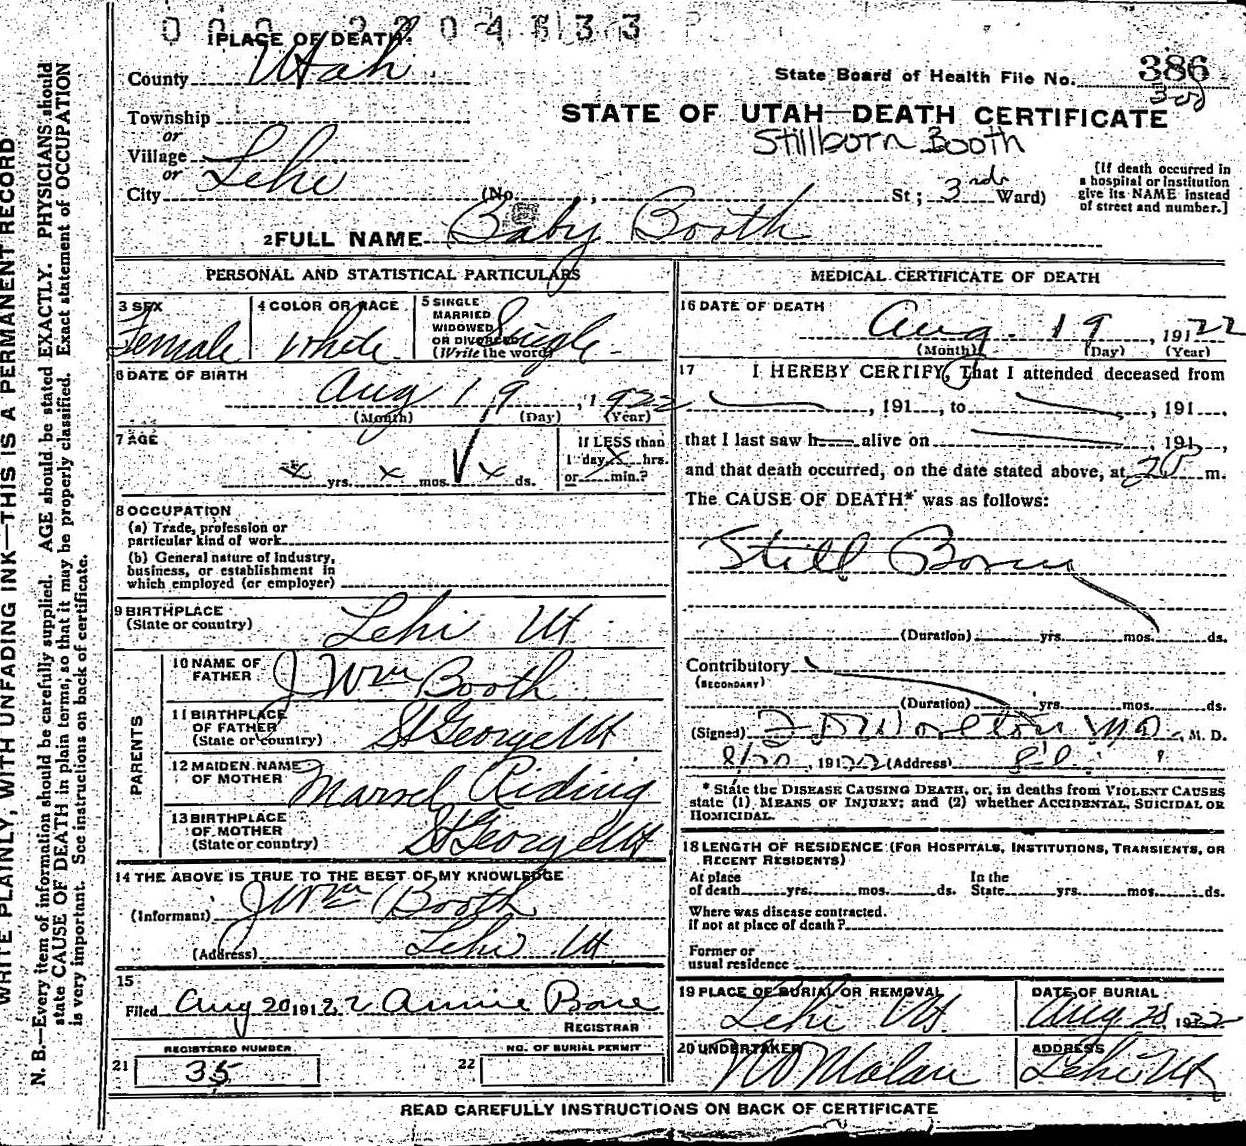 1 PLACE OF DEATH.
County Utah
State Board of Health File No. 386
300
STATE OF UTAH—DEATH CERTIFICATE
Township
or
Village
or
City Lehi
Stillborn Booth
(No. , St; 3rd Ward)
[If death occurred in
a hospital or institution
give its NAME instead
of street and number.]
2 FULL NAME Baby Booth
PERSONAL AND STATISTICAL PARTICULARS
3 SEX
Female
4 COLOR OR RACE
White
5 SINGLE
MARRIED
WIDOWED
OR DIVORCED
(Write the word)
Single
6 DATE OF BIRTH
Aug 19, 1922
(Month) (Day) (Year)
7 AGE
x yrs. x mos. x ds.
If LESS than
1 day, x hrs.
or min.?
8 OCCUPATION
(a) Trade, profession or
particular kind of work
(b) General nature of Industry,
business, or establishment in
which employed (or employer)
9 BIRTHPLACE
(State or country)
Lehi Ut
PARENTS
10 NAME OF
FATHER
J Wm Booth
11 BIRTHPLACE
OF FATHER
(State or country)
St George Ut
12 MAIDEN NAME
OF MOTHER
Marsel Riding
13 BIRTHPLACE
OF MOTHER
(State or country)
St George Ut
14 THE ABOVE IS TRUE TO THE BEST OF MY KNOWLEDGE
(Informant) J Wm Booth
(Address) Lehi Ut
15
Filed Aug 20 1912 22 Annie Bone
REGISTRAR
21 REGISTERED NUMBER
35
22 NO. OF BURIAL PERMIT
MEDICAL CERTIFICATE OF DEATH
16 DATE OF DEATH
Aug. 19, 191 22
(Month) (Day) (Year)
17 I HEREBY CERTIFY, That I attended deceased from
, 191 , to , 191 ,
that I last saw h alive on 191 ,
and that death occurred, on the date stated above, at m.
The CAUSE OF DEATH* was as follows:
Still Born
(Duration) yrs. mos. ds.
Contributory
(SECONDARY)
(Duration) yrs. mos. ds.
(Signed) M.D., M. D.
8/20, 191 22 (Address)
* State the DISEASE CAUSING DEATH, or, in deaths from VIOLENT CAUSES
state (1) MEANS OF INJURY; and (2) whether ACCIDENTAL, SUICIDAL OR
HOMICIDAL.
18 LENGTH OF RESIDENCE (FOR HOSPITALS, INSTITUTIONS, TRANSIENTS, OR
RECENT RESIDENTS)
At place
of death yrs. mos. ds.
In the
State yrs. mos. ds.
Where was disease contracted.
if not at place of death?
Former or
usual residence
19 PLACE OF BURIAL OR REMOVAL
Lehi Ut
DATE OF BURIAL
Aug 20 1922
20 UNDERTAKER
Malan
ADDRESS
Lehi Ut
READ CAREFULLY INSTRUCTIONS ON BACK OF CERTIFICATE
WRITE PLAINLY, WITH UNFADING INK—THIS IS A PERMANENT RECORD
N. B.—Every item of information should be carefully supplied. AGE should be stated EXACTLY. PHYSICIANS should
state CAUSE OF DEATH in plain terms, so that it may be properly classified. Exact statement of OCCUPATION
is very important. See instructions on back of certificate.